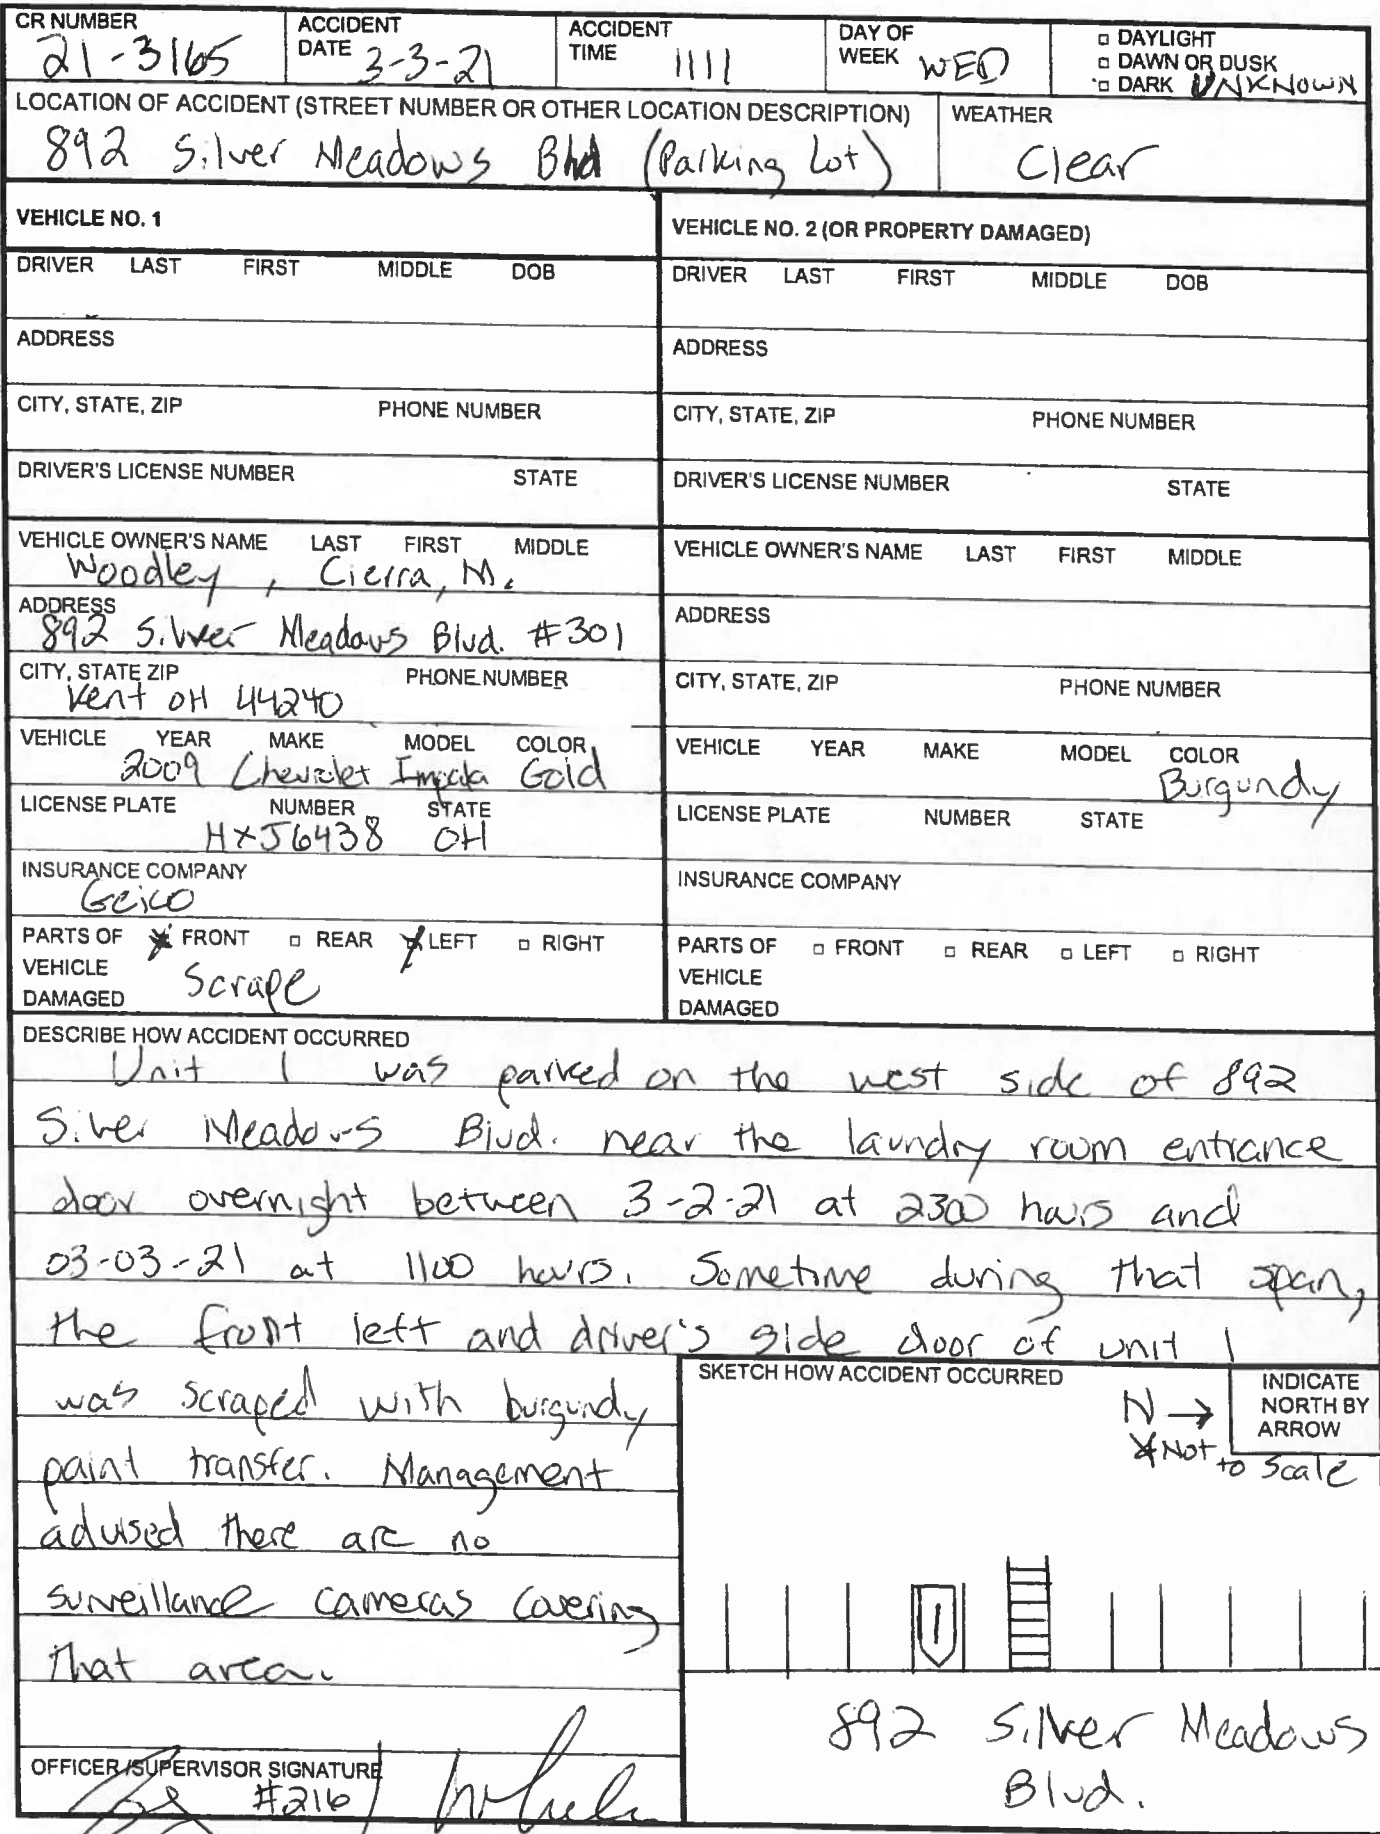 CR NUMBER 21-3165 ACCIDENT DATE 3-3-21 ACCIDENT TIME 1111 DAY OF WEEK WED □ DAYLIGHT
□ DAWN OR DUSK
□ DARK UNKNOWN
LOCATION OF ACCIDENT (STREET NUMBER OR OTHER LOCATION DESCRIPTION) WEATHER
892 Silver Meadows Blvd (Parking Lot) Clear
VEHICLE NO. 1
DRIVER LAST FIRST MIDDLE DOB
ADDRESS
CITY, STATE, ZIP PHONE NUMBER
DRIVER'S LICENSE NUMBER STATE
VEHICLE OWNER'S NAME LAST FIRST MIDDLE
Woodley, Cierra, M.
ADDRESS
892 Silver Meadows Blvd. #301
CITY, STATE ZIP PHONE NUMBER
Kent OH 44240
VEHICLE YEAR MAKE MODEL COLOR
2009 Chevrolet Impala Gold
LICENSE PLATE NUMBER STATE
HXJ6438 OH
INSURANCE COMPANY
Geico
PARTS OF VEHICLE DAMAGED ☒ FRONT □ REAR ☒ LEFT □ RIGHT
Scrape
VEHICLE NO. 2 (OR PROPERTY DAMAGED)
DRIVER LAST FIRST MIDDLE DOB
ADDRESS
CITY, STATE, ZIP PHONE NUMBER
DRIVER'S LICENSE NUMBER STATE
VEHICLE OWNER'S NAME LAST FIRST MIDDLE
ADDRESS
CITY, STATE, ZIP PHONE NUMBER
VEHICLE YEAR MAKE MODEL COLOR
Burgundy
LICENSE PLATE NUMBER STATE
INSURANCE COMPANY
PARTS OF VEHICLE DAMAGED □ FRONT □ REAR □ LEFT □ RIGHT
DESCRIBE HOW ACCIDENT OCCURRED
Unit 1 was parked on the west side of 892
Silver Meadows Blvd. near the laundry room entrance
door overnight between 3-2-21 at 2300 hours and
03-03-21 at 1100 hours. Sometime during that span,
the front left and driver's side door of unit 1
was scraped with burgundy
paint transfer. Management
advised there are no
surveillance cameras covering
that area.
OFFICER/SUPERVISOR SIGNATURE
#216
SKETCH HOW ACCIDENT OCCURRED
INDICATE NORTH BY ARROW
N →
*Not to Scale
1
892 Silver Meadows
Blvd.